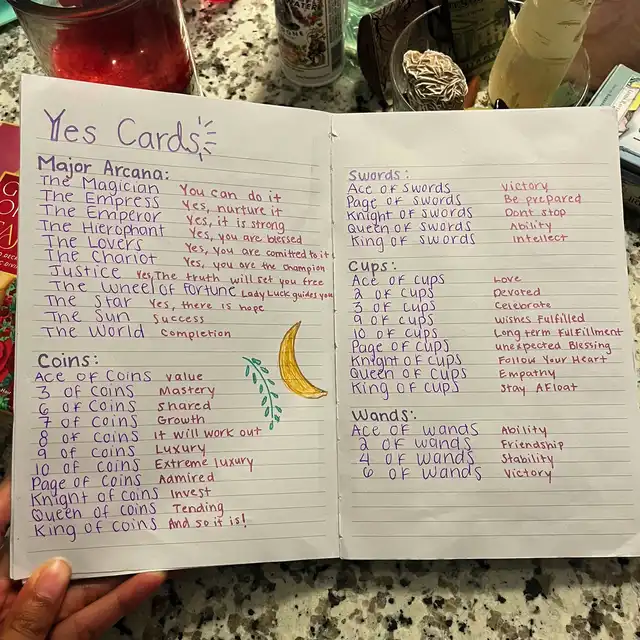 Yes Cards
Major Arcana:
The Magician You can do it
The Empress Yes, nurture it
The Emperor Yes, it is strong
The Hierophant Yes, you are blessed
The Lovers Yes, you are comitted to it
The Chariot Yes, you are the champion
Justice Yes, The truth will set you free
The Wheel of Fortune Lady Luck guides you
The Star Yes, there is hope
The Sun Success
The World Completion
Coins:
Ace of Coins Value
3 of Coins Mastery
6 of Coins Shared
7 of Coins Growth
8 of Coins It will work out
9 of Coins Luxury
10 of Coins Extreme luxury
Page of Coins Admired
Knight of coins Invest
Queen of Coins Tending
King of Coins And so it is!
Swords:
Ace of Swords Victory
Page of Swords Be prepared
Knight of Swords Dont stop
Queen of Swords Ability
King of Swords Intellect
Cups:
Ace of Cups Love
2 of Cups Devoted
3 of Cups Celebrate
9 of Cups Wishes Fulfilled
10 of Cups Long term Fulfillment
Page of Cups unexpected Blessing
Knight of Cups Follow Your Heart
Queen of Cups Empathy
King of Cups Stay Afloat
Wands:
Ace of wands Ability
2 of wands Friendship
4 of wands Stability
6 of wands Victory